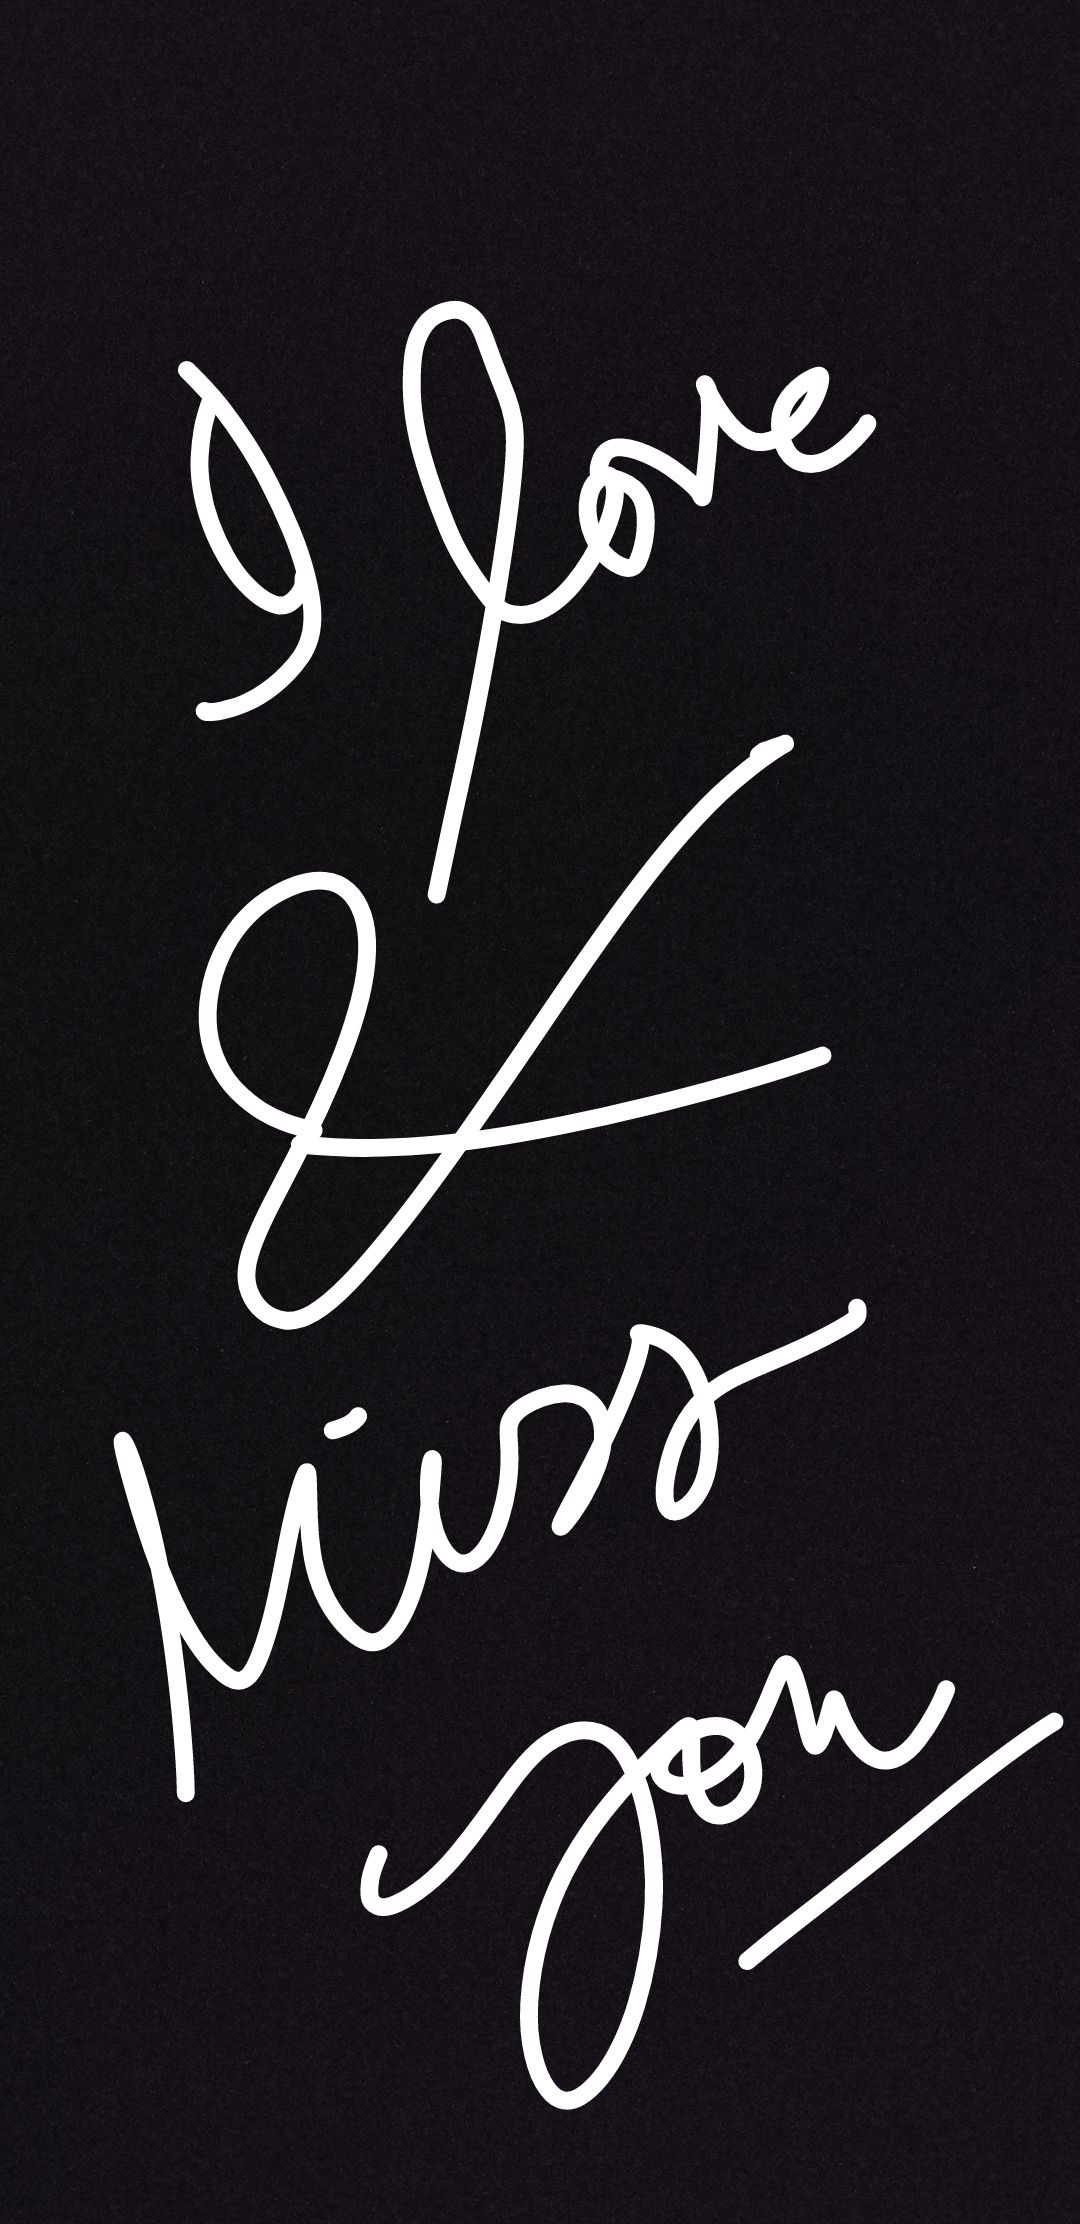 I love
&
Miss
you